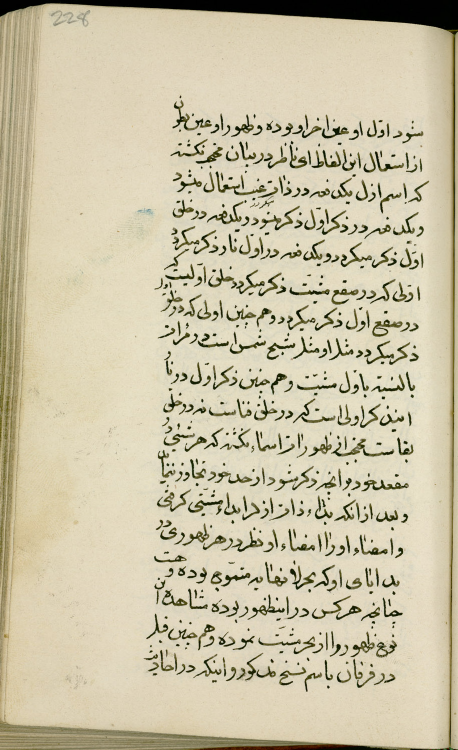 228
شود اول او عین اخر او بوده و ظهور او عین بطون
از استعمال این الفاظ ای ناظر در بیان محتجب نگشته
که اسم ازل یکدفعه در ذات غیب استعمال میشود
و یکدفعه در ذکر اول ذکر میشود و یکدفعه در خلق
اول ذکر میگردد و یکدفعه در اول نار ذکر میگردد
اولی که در صقع مشیت ذکر میگردد خلق اولیت که
در صقع اول ذکر میگردد و هم چنین اولی که در خلق اول
ذکر میگردد مثل او مثل شبح شمس است در مرات
بالنسبة باول مشیت و هم چنین ذکر اول در نار
این ذکر اولی است که در خلق فناست نه در خلق
بقا است محتجب از ظهورات اسماء نگشته که هر شیئی در
مقعد خود بوانچه ذکر شود از حد خود تجاوز ننماید
و بعد از آنکه بداء ذات ازل را بداء مشیتی کرفتی
و امضاء او را امضاء او نظر در هر ظهوری در
بدایای او که بحر لا نهایه متموج بوده و هست
چنانچه هر کس در این ظهور بوده مشاهده این
نوع ظهور را از بحر مشیت نموده و هم چنین قبل
در فرقان باسم نسخ مذکور و اینکه در احادیث